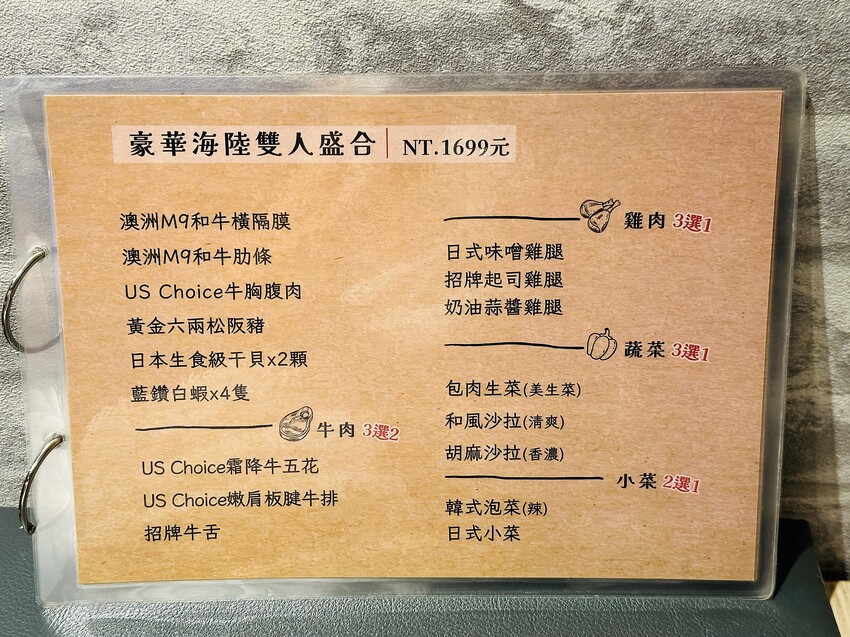 豪華海陸雙人盛合 NT.1699元
澳洲M9和牛橫隔膜
澳洲M9和牛肋條
US Choice牛胸腹肉
黃金六兩松阪豬
日本生食級干貝x2顆
藍鑽白蝦x4隻
牛肉 3選2
US Choice霜降牛五花
US Choice嫩肩板腱牛排
招牌牛舌
雞肉 3選1
日式味噌雞腿
招牌起司雞腿
奶油蒜醬雞腿
蔬菜 3選1
包肉生菜(美生菜)
和風沙拉(清爽)
胡麻沙拉(香濃)
小菜 2選1
韓式泡菜(辣)
日式小菜